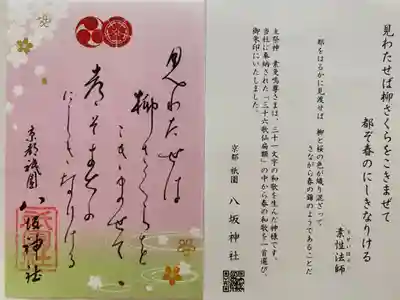 見わたせば
柳さくらを
こきまぜて
都ぞ春の
にしきなりける
京都祇園
八坂神社
見わたせば柳さくらをこきまぜて
都ぞ春のにしきなりける
素性法師
都をはるかに見渡せば 柳と桜の色が織り混ざって
さながら春の錦のようであることだ
主祭神 素戔嗚尊さまは、三十一文字の和歌を生んだ神様です。
当社に奉納された「三十六歌仙扁額」の中から春の和歌を一首選び、
御朱印にいたしました。
京都 祇園 八坂神社